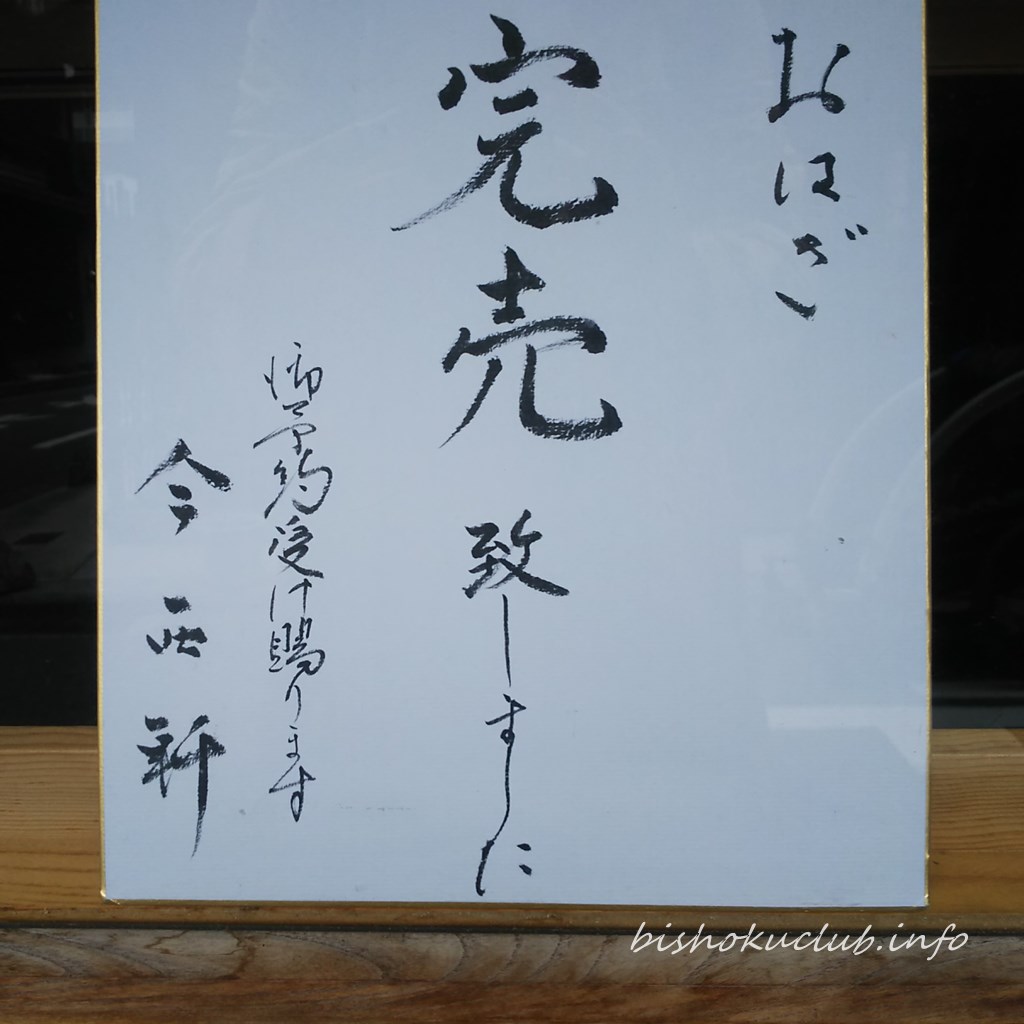 おはぎ
完売致しました
御予約受け賜ります
今西軒
bishokuclub.info